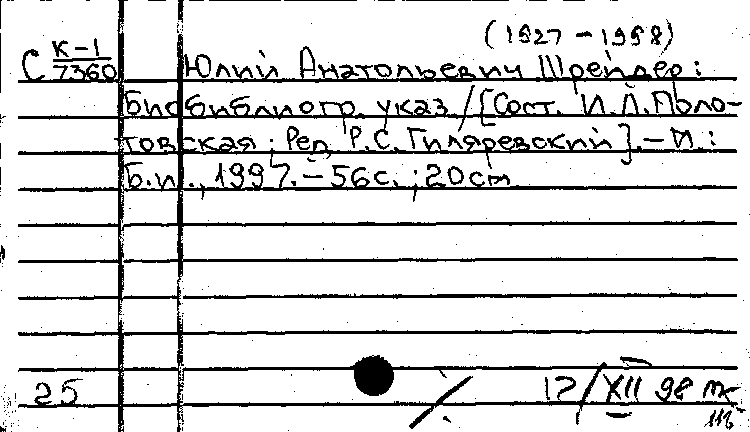 (1927-1998)
С К-1/7360 Юлий Анатольевич Шрейдер:
Биобиблиогр. указ/[Сост. И.Л.Поло-
товская; Ред. Р.С.Гиляревский].-М.:
Б.и., 1997.-56с.;20см
25 17/XII 98